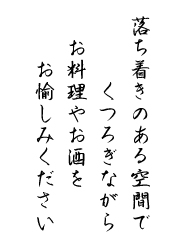 落ち着きのある空間で
くつろぎながら
お料理やお酒を
お愉しみください